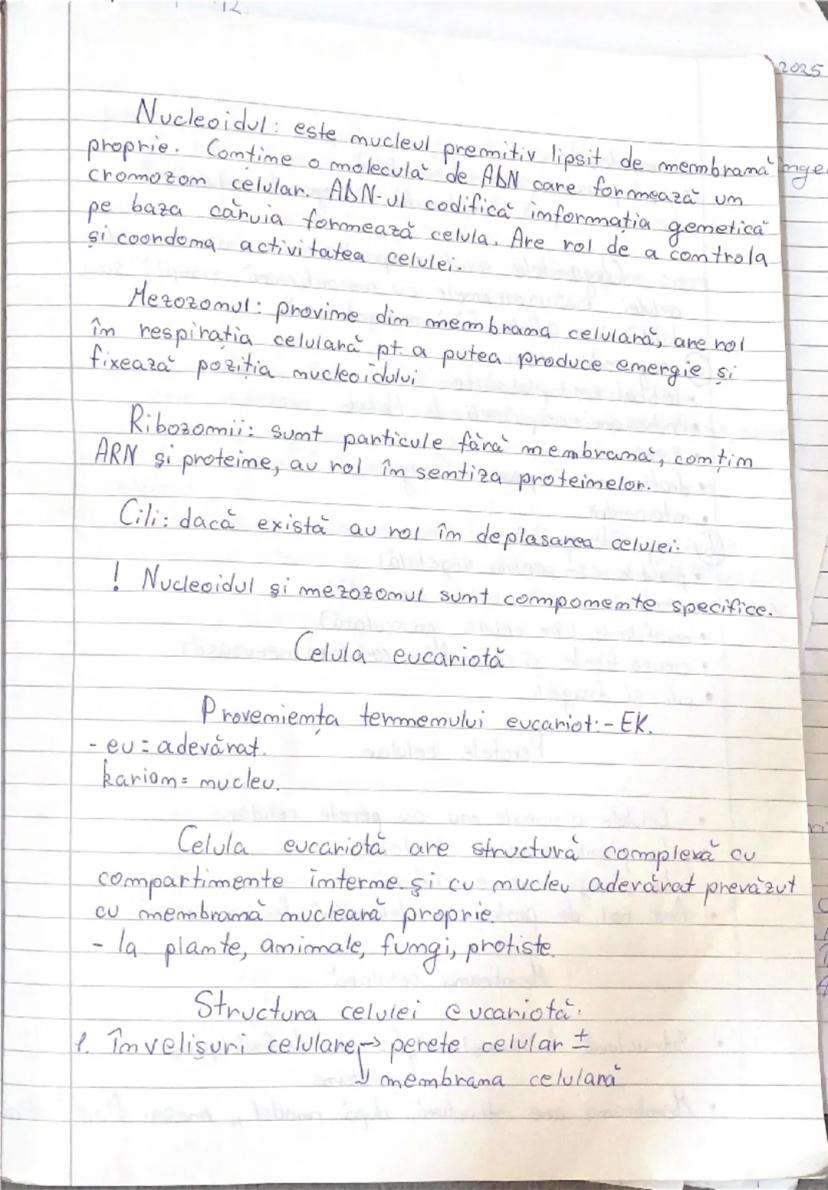 2025
Nucleoidul: este nucleul premitiv lipsit de membrană
proprie. Conține o moleculă de AbN care formează un
cromozom celular. AbN-ul codifică informația genetică
pe baza căruia formează celula. Are rol de a controla
și coordona activitatea celulei.
Mezozomul: provine din membrana celulară, are rol
în respirația celulară pt. a putea produce energie și
fixează poziția nucleoidului
Ribozomii: sunt particule fără membrană, conțin
ARN și proteine, au rol în sentiza proteinelor.
Cili: dacă există au rol în deplasarea celulei.
! Nucleoidul și mezozomul sunt componente specifice.
Celula eucariotă
Proveniența termenului eucariot:- EK.
- eu = adevărat.
karion= nucleu.
Celula eucariotă are structură complexă cu
compartimente interne și cu nucleu adevărat prevăzut
cu membrană nucleară proprie.
- la plante, animale, fungi, protiste.
Structura celulei eucariotă.
1. Învelișuri celulare → perete celular ±
↓ membrana celulară